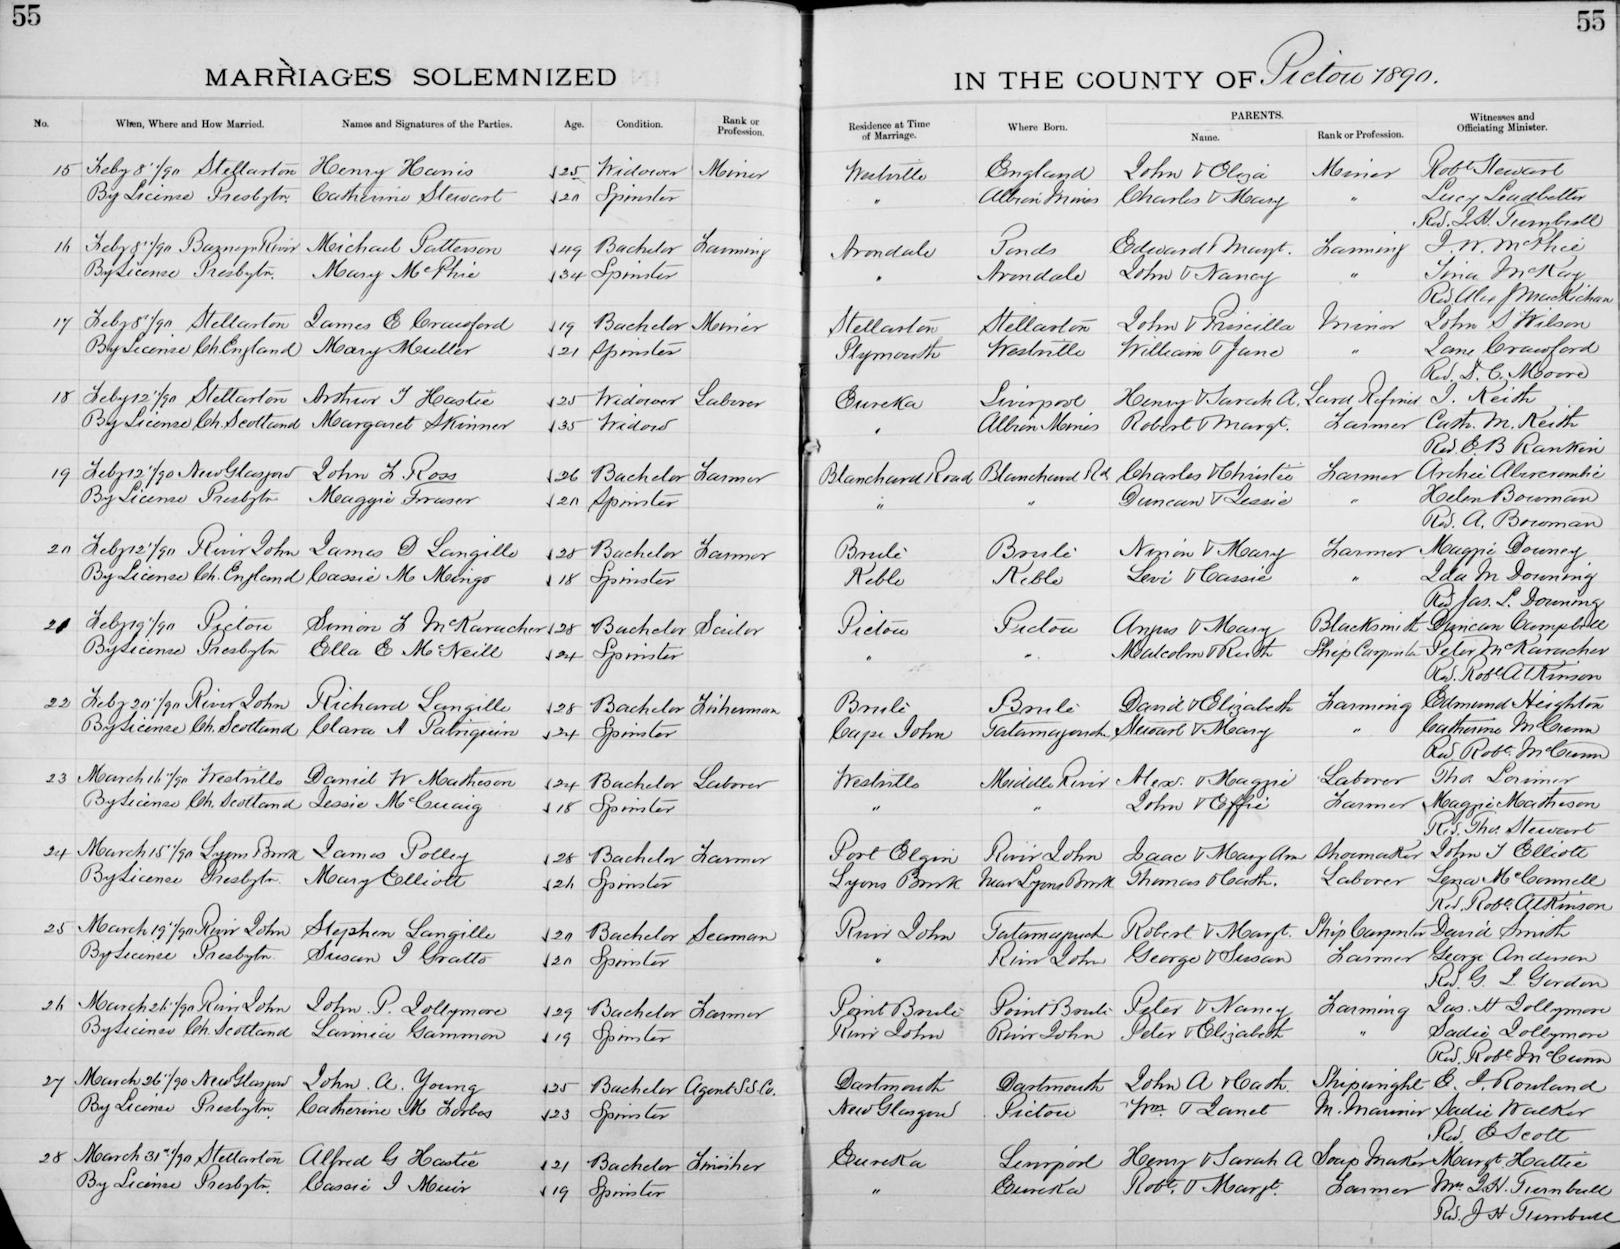 55
55
MARRIAGES SOLEMNIZED
IN THE COUNTY OF Pictou 1890.
No. When, Where and How Married. Names and Signatures of the Parties. Age. Condition. Rank or Profession. Residence at Time of Marriage. Where Born. PARENTS. Name. Rank or Profession. Witnesses and Officiating Minister.
15 Feby 8"/90 Stellarton Henry Harris 25 Widower Miner Westville England John & Eliza Miner Robt Stewart
By License Presbytn. Catherine Stewart 20 Spinster " Albion Mines Charles & Mary " Lucy Leadbetter
Rev. J. H. Turnbull
16 Feby 8"/90 Barneys River Michael Patterson 49 Bachelor Farming Avondale Ponds Edward & Margt. Farming J. W. McPhie
By License Presbytn. Mary McPhie 34 Spinster " Avondale John & Nancy " Tina McKay
Rev. Alex J MacKichan
17 Feby 8"/90 Stellarton James E Crawford 19 Bachelor Miner Stellarton Stellarton John & Priscilla Miner John S Wilson
By License Ch. England Mary Muller 21 Spinster Plymouth Westville William & Jane " Jane Crawford
Rev. D. C. Moore
18 Feby 12"/90 Stellarton Arthur T Hastie 25 Widower Laborer Eureka Liverpool Henry & Sarah A. Lard Refiner J. Keith
By License Ch. Scotland Margaret Skinner 35 Widow " Albion Mines Robert & Margt. Farmer Cath. M. Keith
Rev. E B Rankin
19 Feby 12"/90 New Glasgow John F Ross 26 Bachelor Farmer Blanchard Road Blanchard Rd Charles & Christie Farmer Archie Abercrombie
By License Presbytn Maggie Fraser 20 Spinster " " Duncan & Jessie " Helen Bowman
Rev. A. Bowman
20 Feby 12"/90 River John James D Langille 28 Bachelor Farmer Brule Brule Ninion & Mary Farmer Maggie Downey
By License Ch. England Cassie M Mingo 18 Spinster Keble Keble Levi & Cassie " Ida M Downing
Rev Jas. L. Downing
21 Feby 19"/90 Pictou Simon F McKaracher 28 Bachelor Sailor Pictou Pictou Angus & Mary Blacksmith Duncan Campbell
By License Presbytn Ella E McNeill 24 Spinster " " Malcolm & Ruth Ship Carpenter Peter McKaracher
Rev. Robt Atkinson
22 Feby 20"/90 River John Richard Langille 28 Bachelor Fisherman Brule Brule David & Elizabeth Farming Edmund Heighton
By License Ch. Scotland Clara A Patriquin 24 Spinster Cape John Tatamagouch Stewart & Mary " Catherine McCunn
Rev Robt. McCunn
23 March 16"/90 Westville Daniel W Matheson 24 Bachelor Laborer Westville Middle River Alex. & Maggie Laborer Thos Lorimer
By License Ch. Scotland Jessie McCuaig 18 Spinster " " John & Effie Farmer Maggie Matheson
Rev. Thos. Stewart
24 March 18"/90 Lyons Brook James Polley 28 Bachelor Farmer Port Elgin River John Isaac & Mary Ann Shoemaker John T Elliott
By License Presbytn. Mary Elliott 26 Spinster Lyons Brook Near Lyons Brook Thomas & Cath. Laborer Lena McConnell
Rev. Robt. Atkinson
25 March 19"/90 River John Stephen Langille 20 Bachelor Seaman River John Tatamagouch Robert & Margt. Ship Carpenter David Smith
By License Presbytn. Susan J Gratto 20 Spinster " River John George & Susan Farmer George Anderson
Rev. G. L Gordon
26 March 26"/90 River John John P. Jollymore 29 Bachelor Farmer Point Brule Point Brule Peter & Nancy Farming Jas. H Jollymore
By License Ch. Scotland Lavinia Gammon 19 Spinster River John River John Peter & Elizabeth " Sadie Jollymore
Rev. Robt McCunn
27 March 26"/90 New Glasgow John. A. Young 25 Bachelor Agent S.S. Co. Dartmouth Dartmouth John A & Cath Shipwright E. J. Rowland
By License Presbytn. Catherine M Forbes 23 Spinster New Glasgow Pictou Wm. & Janet M. Mariner Sadie Walker
Rev. E Scott
28 March 31st/90 Stellarton Alfred G Hastie 21 Bachelor Finisher Eureka Liverpool Henry & Sarah A Soap Maker Margt Hattie
By License Presbytn. Cassie J Muir 19 Spinster " Eureka Robt. & Margt. Farmer Mrs J. H. Turnbull
Rev. J H Turnbull